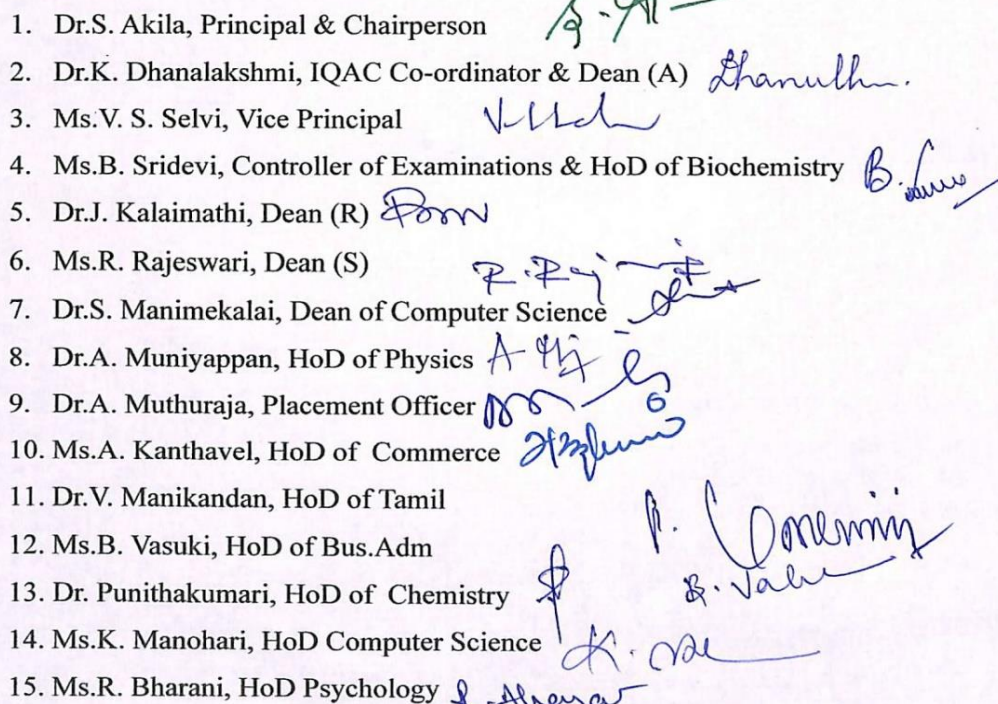 1. Dr.S. Akila, Principal & Chairperson
2. Dr.K. Dhanalakshmi, IQAC Co-ordinator & Dean (A)
3. Ms.V. S. Selvi, Vice Principal
4. Ms.B. Sridevi, Controller of Examinations & HoD of Biochemistry
5. Dr.J. Kalaimathi, Dean (R)
6. Ms.R. Rajeswari, Dean (S)
7. Dr.S. Manimekalai, Dean of Computer Science
8. Dr.A. Muniyappan, HoD of Physics
9. Dr.A. Muthuraja, Placement Officer
10. Ms.A. Kanthavel, HoD of Commerce
11. Dr.V. Manikandan, HoD of Tamil
12. Ms.B. Vasuki, HoD of Bus.Adm
13. Dr. Punithakumari, HoD of Chemistry
14. Ms.K. Manohari, HoD Computer Science
15. Ms.R. Bharani, HoD Psychology